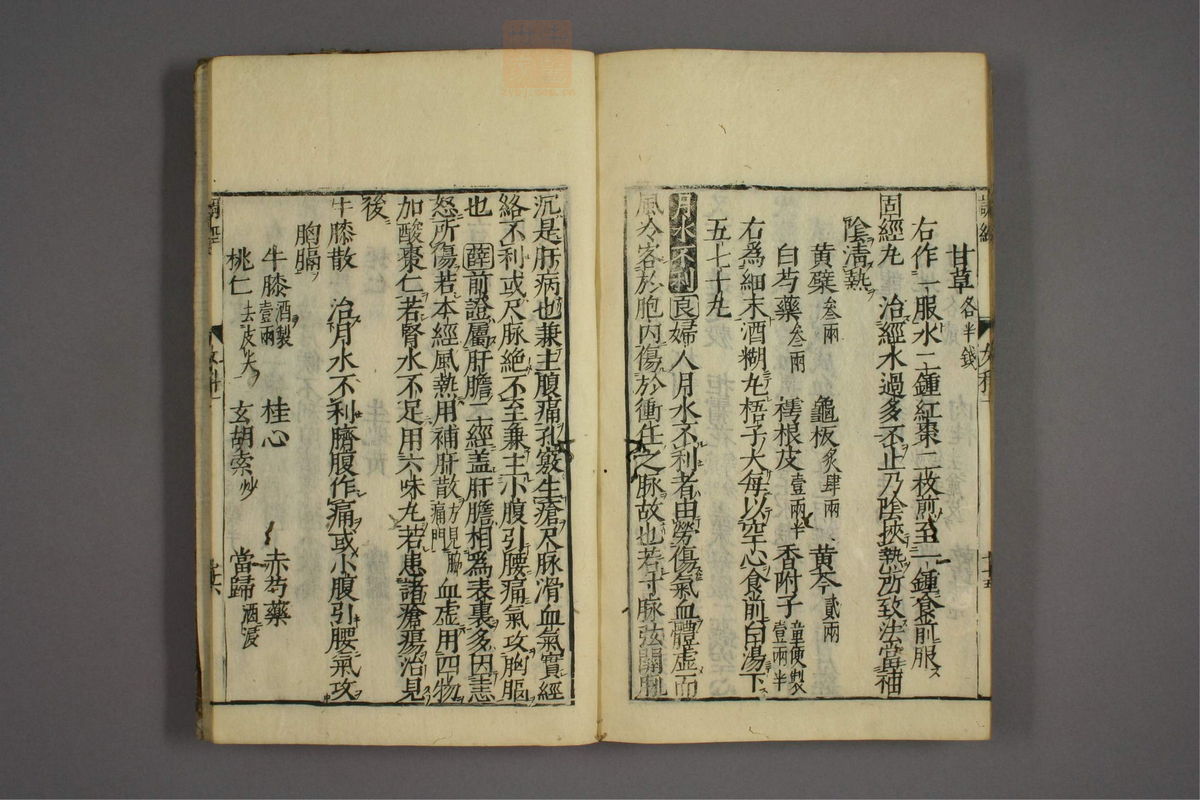 甘草各半錢
右作一服水二鍾紅棗二枚煎至一鍾食前服
固經丸　治經水過多不止乃陰挾熱所致法當補
陰清熱
黄蘗叁兩　龜板炙肆兩　黄芩貳兩
白芍藥叁兩　樗根皮壹兩半　香附子童便製壹兩半
右爲細末酒糊丸梧子大每以空心食前白湯下
五七十丸
月水不利良婦人月水不利者由勞傷氣血體虛而
風冷客於胞内傷於衝任之脉故也若寸脉弦關脉
沉是肝病也兼主腹痛孔竅生瘡尺脉滑血氣實經
絡不利或尺脉絶不至兼主小腹引腰痛氣攻胸膈
也薛前證屬肝膽二經蓋肝膽相爲表裏多因恚
怒所傷若本經風熱用補肝散方見脇痛門血虛用四物
加酸棗仁若腎水不足用六味丸若患諸瘡瘍治見
後
牛膝散　治月水不利臍腹作痛或小腹引腰氣攻
胸膈
牛膝酒製壹兩　桂心　赤芍藥
桃仁去皮尖　玄胡索炒　當歸酒浸
調經　女科一　廿六